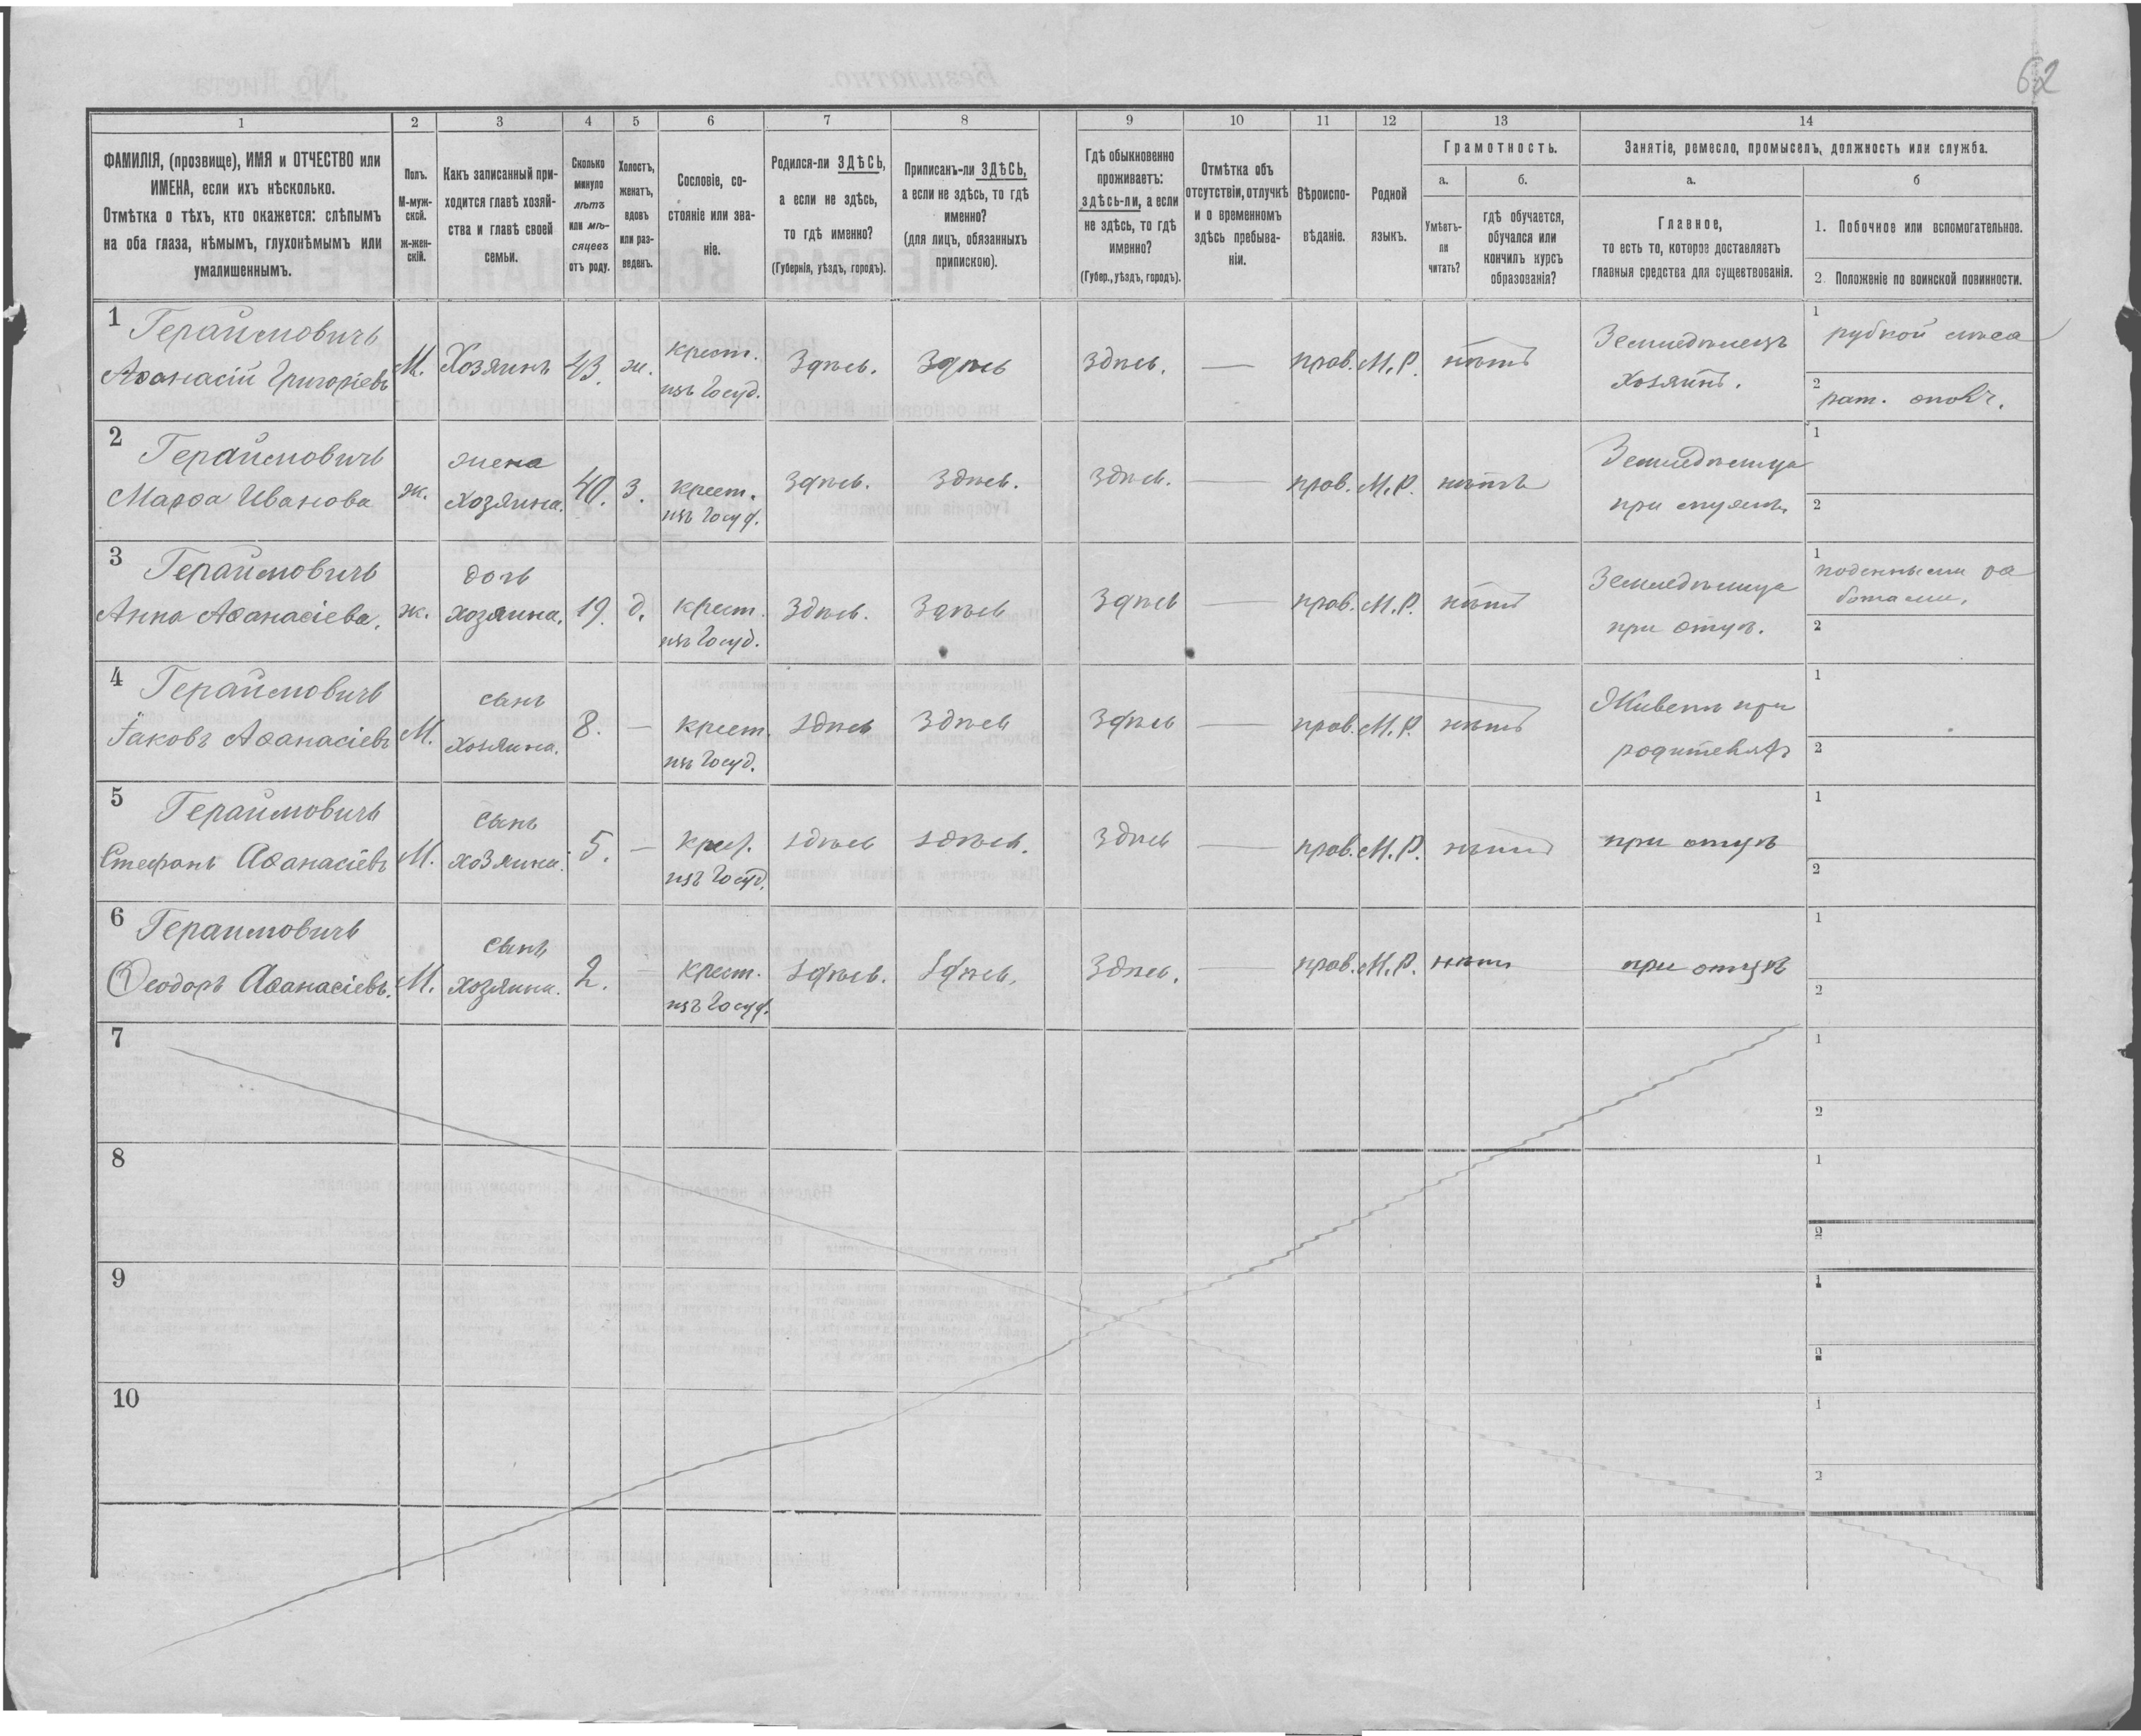 62
1 2 3 4 5 6 7 8 9 10 11 12 13 14
ФАМИЛІЯ, (прозвище), ИМЯ и ОТЧЕСТВО или
ИМЕНА, если ихъ нѣсколько.
Отмѣтка о тѣхъ, кто окажется: слѣпымъ
на оба глаза, нѣмымъ, глухонѣмымъ или
умалишеннымъ.
Полъ.
М-муж-
ской.
Ж-жен-
скій.
Какъ записанный при-
ходится главѣ хозяй-
ства и главѣ своей
семьи.
Сколько
минуло
лѣтъ
или мѣ-
сяцевъ
отъ роду.
Холостъ,
женатъ,
вдовъ
или раз-
веденъ.
Сословіе, со-
стояніе или зва-
ніе.
Родился-ли ЗДѢСЬ,
а если не здѣсь,
то гдѣ именно?
(Губернія, уѣздъ, городъ).
Приписанъ-ли ЗДѢСЬ,
а если не здѣсь, то гдѣ
именно?
(для лицъ, обязанныхъ
припискою).
Гдѣ обыкновенно
проживаетъ:
здѣсь-ли, а если
не здѣсь, то гдѣ
именно?
(Губер., уѣздъ, городъ).
Отмѣтка объ
отсутствіи, отлучкѣ
и о временномъ
здѣсь пребыва-
ніи.
Вѣроиспо-
вѣданіе.
Родной
языкъ.
Грамотность.
а. б.
Умѣетъ-
ли
читать?
гдѣ обучается,
обучался или
кончилъ курсъ
образованія?
Занятіе, ремесло, промыселъ, должность или служба.
а. б
Главное,
то есть то, которое доставляетъ
главныя средства для существованія.
1. Побочное или вспомогательное.
2. Положеніе по воинской повинности.
1 Гераймовичъ
Аѳанасій Григоріевъ
М.
Хозяинъ
43.
ж.
крест.
изъ Госуд.
Здѣсь.
Здѣсь
Здѣсь.
—
прав.
М.Р.
нѣтъ
Земледѣлецъ
хозяинъ.
1 рубкой лѣса
2 рат. ополч.
2 Гераймовичъ
Марѳа Иванова
ж.
жена
хозяина.
40.
З.
крест.
изъ Госуд.
Здѣсь.
Здѣсь.
Здѣсь.
—
прав.
М.Р.
нѣтъ
Земледѣлица
при мужѣ.
1
2
3 Гераймовичъ
Анна Аѳанасіева.
ж.
дочь
хозяина.
19.
д.
крест.
изъ Госуд.
Здѣсь.
Здѣсь
Здѣсь
—
прав.
М.Р.
нѣтъ
Земледѣлица
при отцѣ.
1 поденными ра
ботами.
2
4 Гераймовичъ
Іаковъ Аѳанасіевъ
М.
сынъ
хозяина.
8.
—
крест.
изъ Госуд.
здѣсь
Здѣсь
Здѣсь
—
прав.
М.Р.
нѣтъ
Живетъ при
родителяхъ
1
2
5 Гераймовичъ
Стефанъ Аѳанасіевъ
М.
сынъ
хозяина.
5.
—
крест.
изъ Госуд.
здѣсь
здѣсь.
Здѣсь
—
прав.
М.Р.
нѣтъ
при отцѣ
1
2
6 Гераимовичъ
Ѳеодоръ Аѳанасіевъ.
М.
сынъ
хозяина.
2.
крест.
изъ Госуд.
здѣсь.
здѣсь.
Здѣсь.
—
прав.
М.Р.
нѣтъ
при отцѣ
1
2
7
1
2
8
1
2
9
1
2
10
1
2